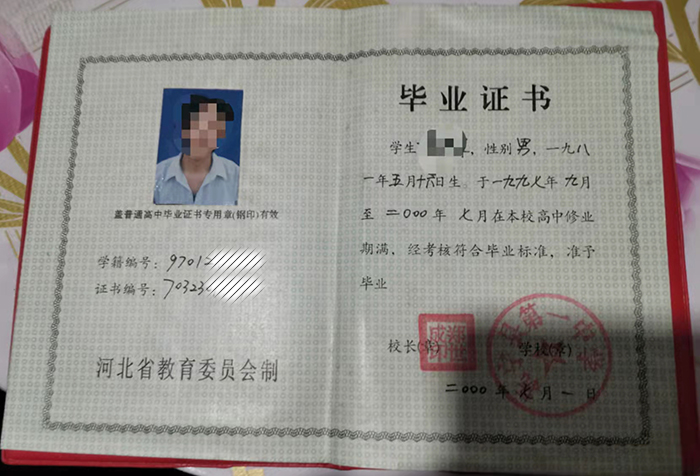 盖普通高中毕业证书专用章(钢印)有效
学籍编号: 97012
证书编号: 70323
河北省教育委员会制
毕业证书
学生 , 性别男, 一九八
一年五月十六日生. 于一九九七年九月
至二000年 七月在本校高中修业
期满, 经考核符合毕业标准, 准予
毕业
校长(章) 学校(章)
县第一中学
二000年七月一日